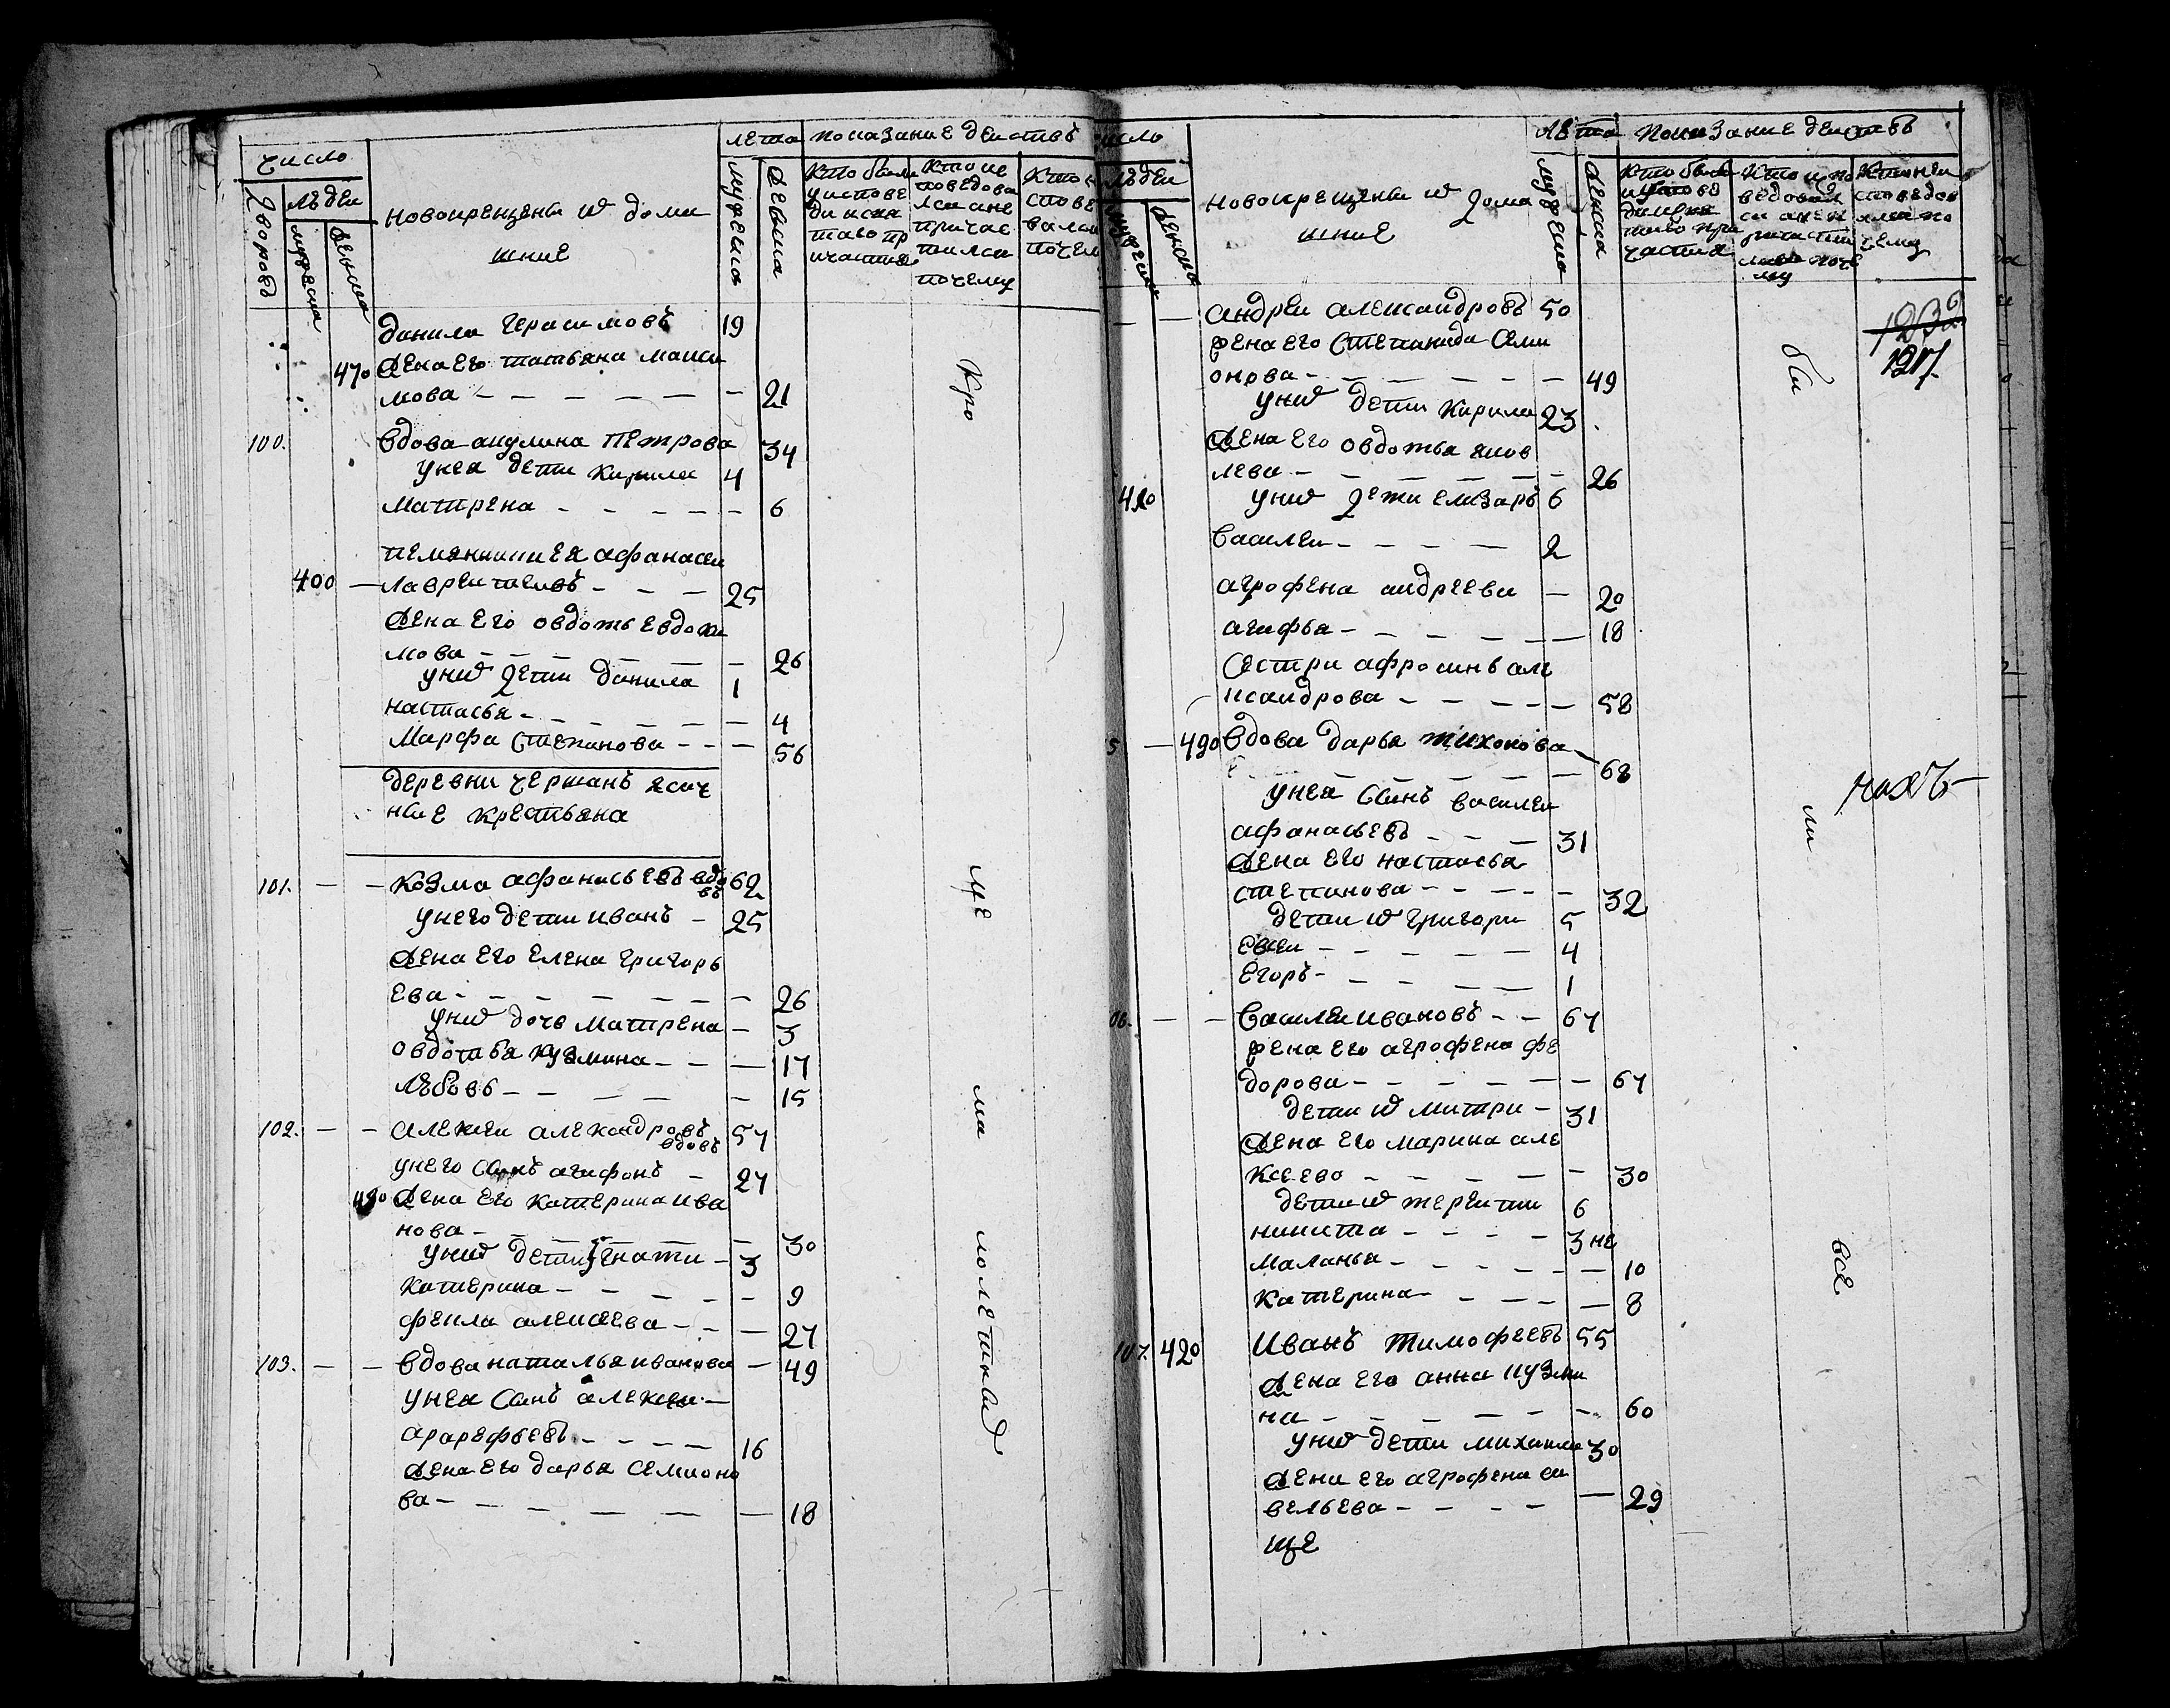 число
лѣта показание деиствъ
дворовъ
людеи
мужеска
женска
новокрещены и домаш
шние
мужеска
женска
кто были
у испове
ди и свя
таго пр
ичастия
кто ис
поведова
лси а не
причас
тился
почему
кто н
спове
вались
почем
данила герасимовъ 19
470 жена его татьяна макси
мова - - - - - - 21
100. вдова акулина петрова 34
у нея дети кирила 4
матрена - - - - - 6
племянники ея афанасеи
400 — лаврентиевъ - - - 25
жена его овдотья евдоки
мова - - - - - - 26
у них дети данила 1
настасья - - - - - - 4
марфа степанова - - - 56
деревни чершанъ ясач
ные крестьяна
101. - - козма афанасьевъ вдо 62
въ
у него дети иванъ - 25
жена его елена григорь
ева - - - - - - - 26
у них дочь матрена - 3
овдотья кузмина - - - 17
любовь - - - - - 15
102. - - алексеи александровъ 54
вдовъ
у него сынъ агафонъ - 24
480 жена его катерина ива
нова - - - - - - 30
у них дети игнати - 3
катерина - - - - - 9
фекла алексеева - - - 24
103. - - вдова наталья иванова - 49
у нея сынъ алексеи -
арарефьевъ - - - - 16
жена его дарья семионо
ва - - - - - - 18
кро
ме
ма
лолетныхъ
число
лѣта показание деиствъ
людеи
мужеска
женска
новокрещены и дома
шние
мужеска
женска
кто были
у испове
ди и свя
таго при
частия
кто испо
ведовал
си а не
причасти
лися поче
му
кто не и
споведов
ался по
чему
- - андреи александровъ 50
жена его степанида семи
онова - - - - - - 49
у них дети кирила 23
жена его овдотья яков
лева - - - - - - 26
410 у них дети елизаръ 6
василеи - - - - 2
агрофена андреева - 20
агафья - - - - - - 18
сестра афросинья але
ксандрова - - - - - 58
5 - 490 вдова дарья тихонова
- - - - - 68
у нея сынъ василеи
афанасьевъ - - - 31
жена его настасья
степанова - - - - - 32
дети их григори 5
евсеи - - - - - 4
егоръ - - - - - 1
06. - - василеи ивановъ - - 64
жена его агрофена фе
дорова - - - - - - 64
дети их митри - 31
жена его марина але
ксеева - - - - - 30
дети их терентии 6
никита - - - - 3 не
маланья - - - - - - 10
катерина - - - - - 8
107. 420 иванъ тимофеевъ 55
жена его анна кузми
на - - - - - - 60
у них дети михаила 30
жена его агрофена са
вельева - - - - - 29
бы
ли
все